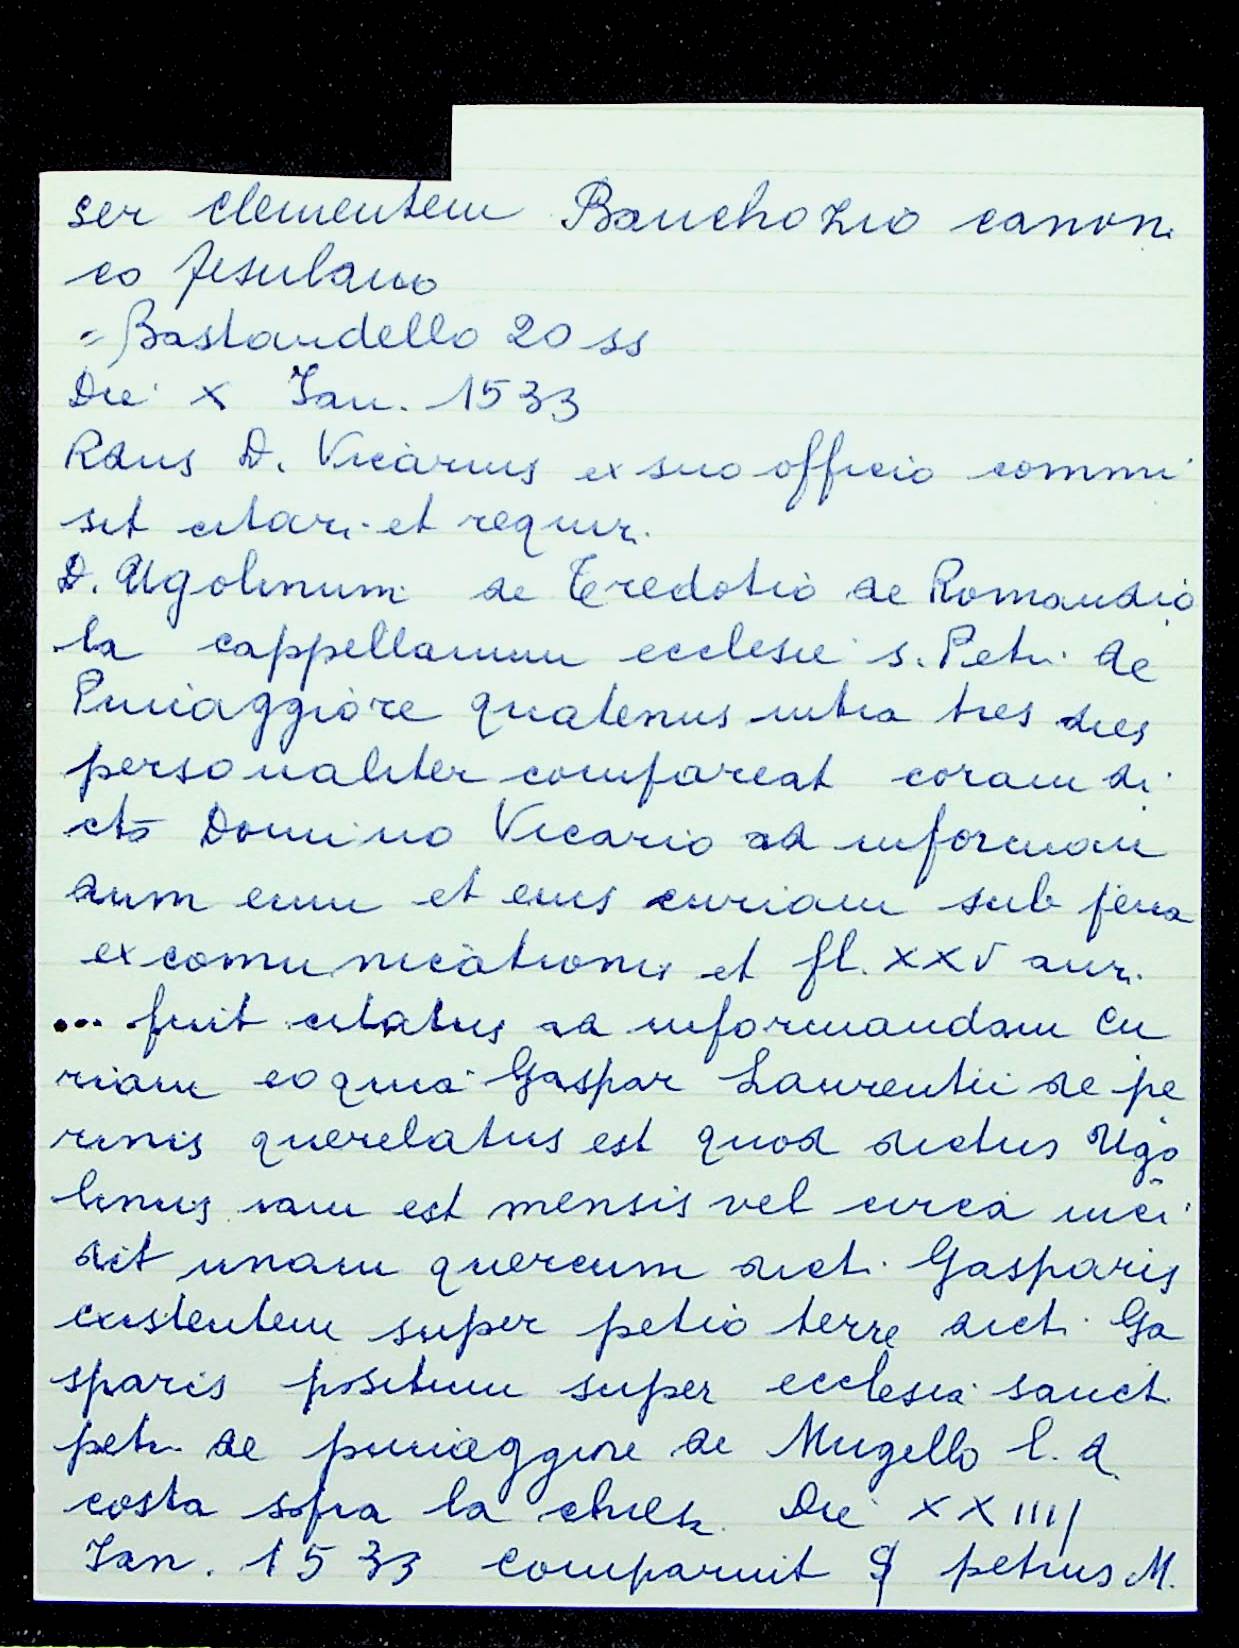 ser clementem Bauchozio canoni
co fesulano
= Bastardello 20 ss
Die X Ian. 1533
Rdus D. Vicarius ex suo officio commi
sit citari et requiri
D. Ugolinum de Tredotio de Romandio
la cappellanum ecclesie s. Petri de
Pimiaggiore quatenus intra tres dies
personaliter compareat coram di
cto Domino Vicario ad informan
dum eum et eius curiam sub pena
excomunicationis et fl. XXV aur.
... fuit citatus ad informandam cu
riam eo quia Gaspar Laurentii de pe
rinis querelatus est quod dictus Ugo
linus iam est mensis vel circa inci
dit unam quercum dicti Gasparis
existentem super petio terre dicti Ga
sparis positum super ecclesia sancti
petri de pimiaggiore de Mugello l. d.
costa sopra la chiesa. Die XXIIII
Ian. 1533 comparuit S petrus M.